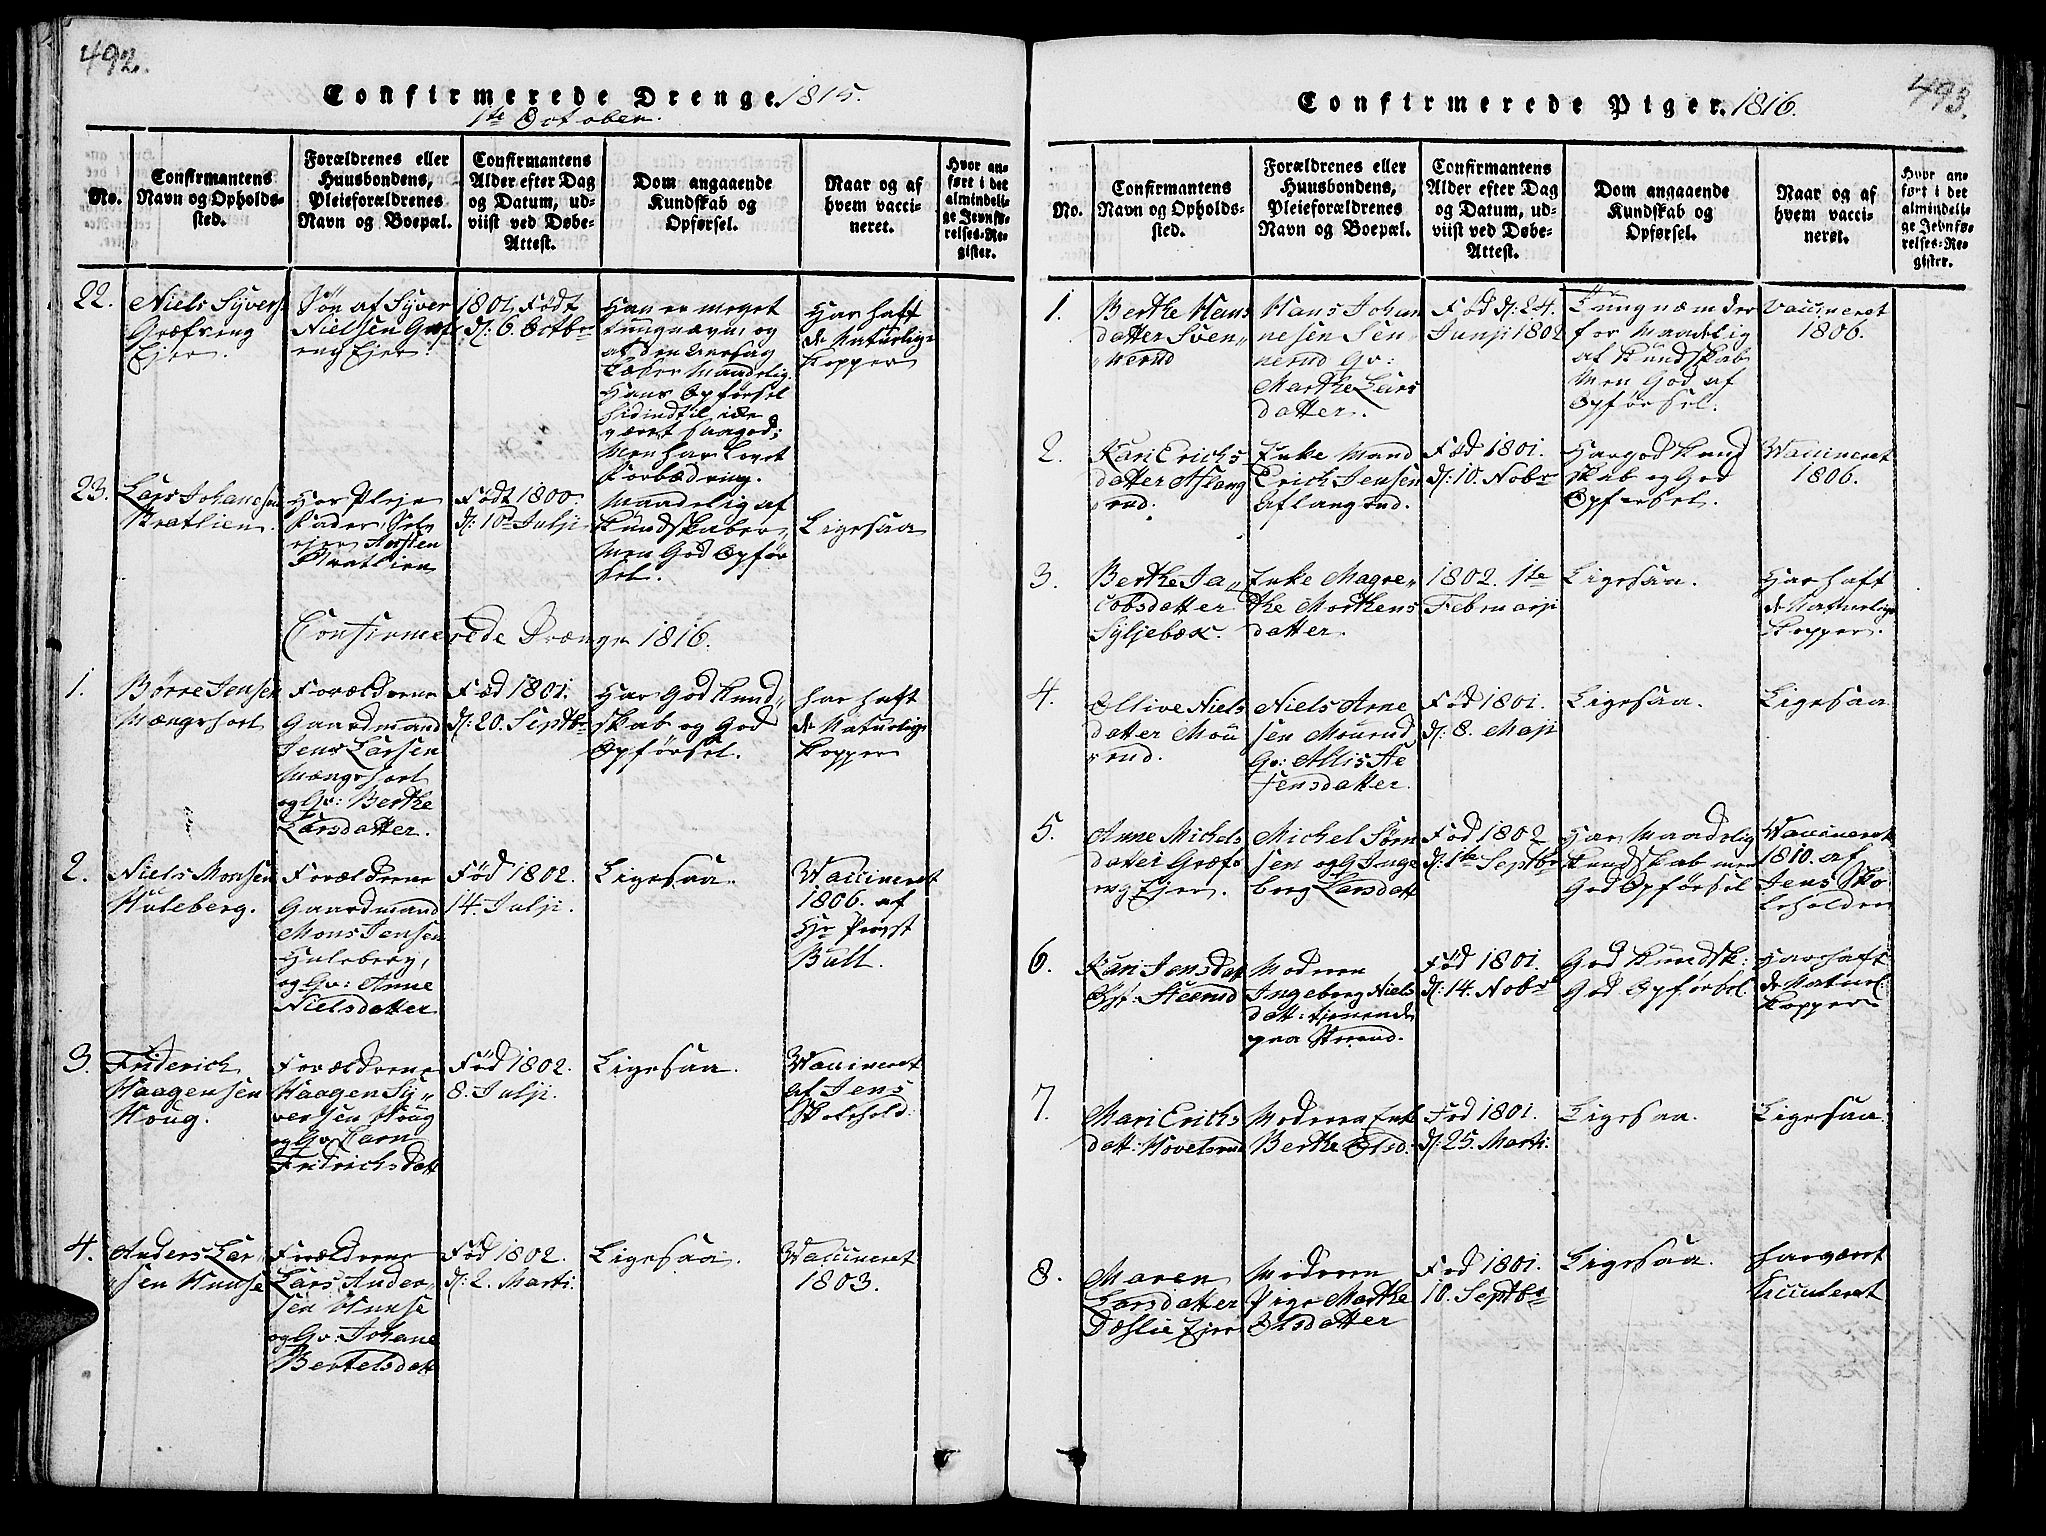 492.
Confirmerede Drenge 1815.
1te October.
No.
Confirmantens
Navn og Opholds-
sted.
Forældrenes eller
Huusbondens,
Pleieforældrenes
Navn og Boepæl.
Confirmantens
Alder efter Dag
og Datum, ud-
viist ved Døbe-
Attest.
Dom angaaende
Kundskab og
Opførsel.
Naar og af
hvem vacci-
neret.
Hvor an-
ført i det
almindeli-
ge Jevnfø-
relses-Re-
gister.
22.
Niels Syvers
Græfsring
Ejer.
Søn af Syver
Nielsen Græfs
reng Ejer.
1801 Født
d: 6. Octbr
Han er meget
tungnæm, og
af den Aarsag
Læser Maadelig.
Hans Opførsel
hidindtil ikke
været saa god;
Men har Lovet
Forbædring.
Har haft
de Naturlige
Kopper
23.
Lars Johanesen
Bratlien.
Har Pleje
Fader, Selv
ejer Aasten
Bratlien
Født 1800
d: 10d Julji
Maadelig af
Kundskaber,
Men God Opfør
sel.
Ligesaa
Confirmerede Drænge 1816.
1.
Børre Jensen
Mængshoel
Forældrene
Gaardmand
Jens Larsen
Mængshoel
og Gv: Berthe
Larsdatter.
Fød 1801.
d: 20. Septbr
Har God Kund
skab og God
Opførsel.
har haft
de Naturlige
Kopper
2.
Niels Monsen
Huleberg.
Forældrene
Gaardmand
Mons Jensen
Huleberg,
og Gv: Anne
Nielsdatter
Fød 1802.
14. Julji.
Ligesaa.
Waccineret
1806. af
Hr Provst
Bull.
3.
Friderich
Haagensen
Houg.
Forældrene
Haagen Sy
versen Houg
og Gv Karn
Fridrichsdatt
Fød 1802.
8. Julji.
Ligesaa.
Waccineret
af Jens
Skolehold:
4.
Anders Lar
sen Huuse
Forældrene
Lars Ander
sen Huuse
og Gv: Johane
Bertelsdatt
Fød 1802.
d: 2. Marti:
Ligesaa.
Waccineret
1803.
493.
Confirmerede Piger. 1816.
No.
Confirmantens
Navn og Opholds-
sted.
Forældrenes eller
Huusbondens,
Pleieforældrenes
Navn og Boepæl.
Confirmantens
Alder efter Dag
og Datum, ud-
viist ved Døbe-
Attest.
Dom angaaende
Kundskab og
Opførsel.
Naar og af
hvem vacci-
neret.
Hvor an-
ført i det
almindeli-
ge Jevnfø-
relses-Re-
gister.
1.
Berthe Hans
datter Sven
nerud
Hans Johan
nesen Sen
nerud Gv:
Marthe Lars
datter.
Fød d: 24.
Junji 1802
Tungnæm der
for Maadelig
af Kundskab
Men God af
Opførsel.
Vaccineret
1806.
2.
Kari Erichs
datter Aslang
rud.
Enke Mand
Erich Jensen
Aslangrud.
Fød 1801.
d: 10. Nobr
Har god Kund
skab og God
Opførsel.
Waccineret
1806.
3.
Berthe Ja
cobsdatter
Syljebæk.
Enke Magre
the Morthens
datter.
1802. 1te
Februarji
Ligesaa.
Har haft
de Naturlige
Kopper.
4.
Ollive Niels
datter Mou
rud.
Niels Arne
sen Mourud
Gv: Allis He
jensdatter.
Fød 1801.
d: 8. Maji
Ligesaa.
Ligesaa.
5.
Anne Michels
datter Græfs
eng Ejer.
Michel Sørn
sen og G Inge
borg Larsdatt
Fød 1802
d: 1te Septbr
Har Maadelig
Kundskab men
God Opførsel
Waccineret
1810. af
Jens Sko
leholder
6.
Kari Jensdatt
Steerud
Modren
Ingeborg Niels
datt: tjenende
paa Steerud.
Fød 1801.
d: 14. Nobr
God Kundsk:
God Opførsel
Har haft
de Naturl:
Kopper
7.
Mari Erichs
datt: Hovelsrud
Modren Enk
Berthe Olsd:
Fød 1801.
d: 25. Marti:
Ligesaa.
Ligesaa.
8.
Maren
Larsdatter
Dæhlie Ejer
Modren
Pige Marthe
Olsdatter
Fød 1801.
10. Septbr
Ligesaa.
har været